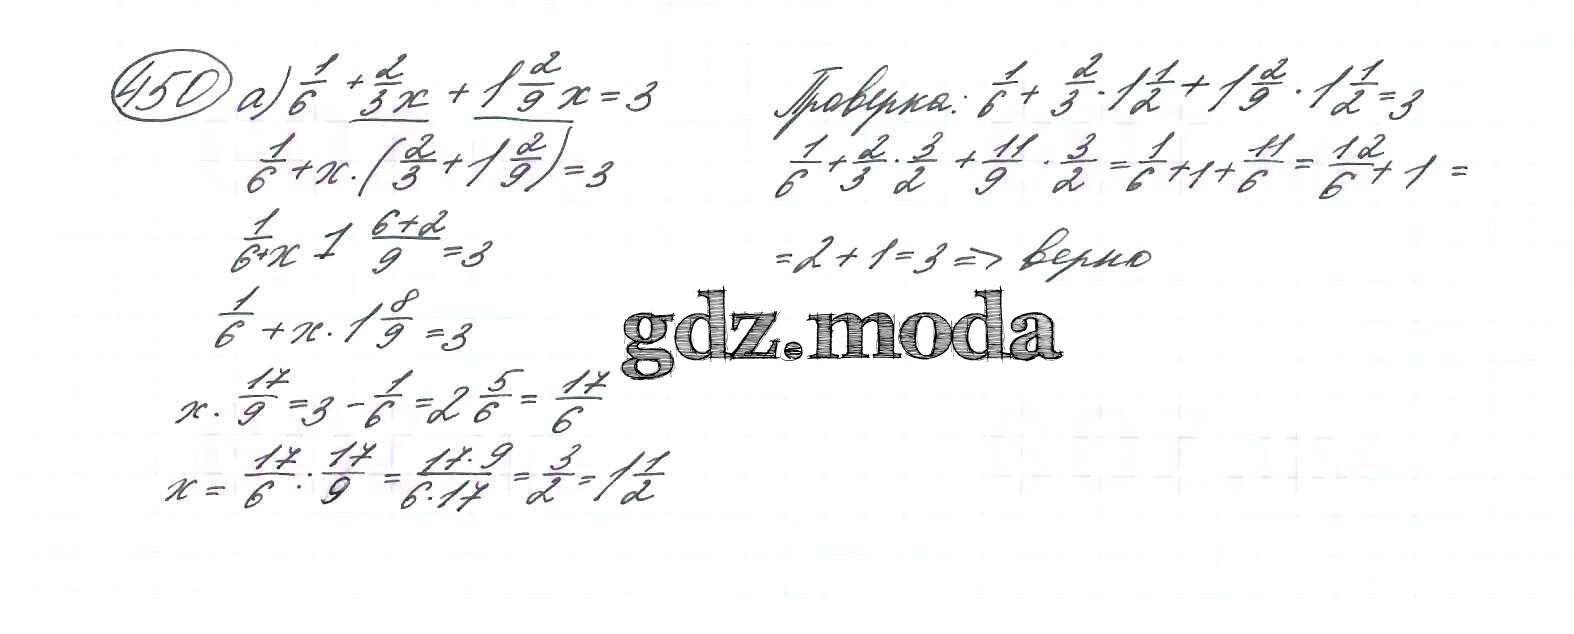 450 а) 1/6 + 2/3 x + 1 2/9 x = 3
1/6 + x · (2/3 + 1 2/9) = 3
1/6 + x 1 (6+2)/9 = 3
1/6 + x · 1 8/9 = 3
x · 17/9 = 3 - 1/6 = 2 5/6 = 17/6
x = 17/6 : 17/9 = 17·9/6·17 = 3/2 = 1 1/2
Проверка: 1/6 + 2/3 · 1 1/2 + 1 2/9 · 1 1/2 = 3
1/6 + 2/3 · 3/2 + 11/9 · 3/2 = 1/6 + 1 + 11/6 = 12/6 + 1 =
= 2 + 1 = 3 => верно
gdz.moda